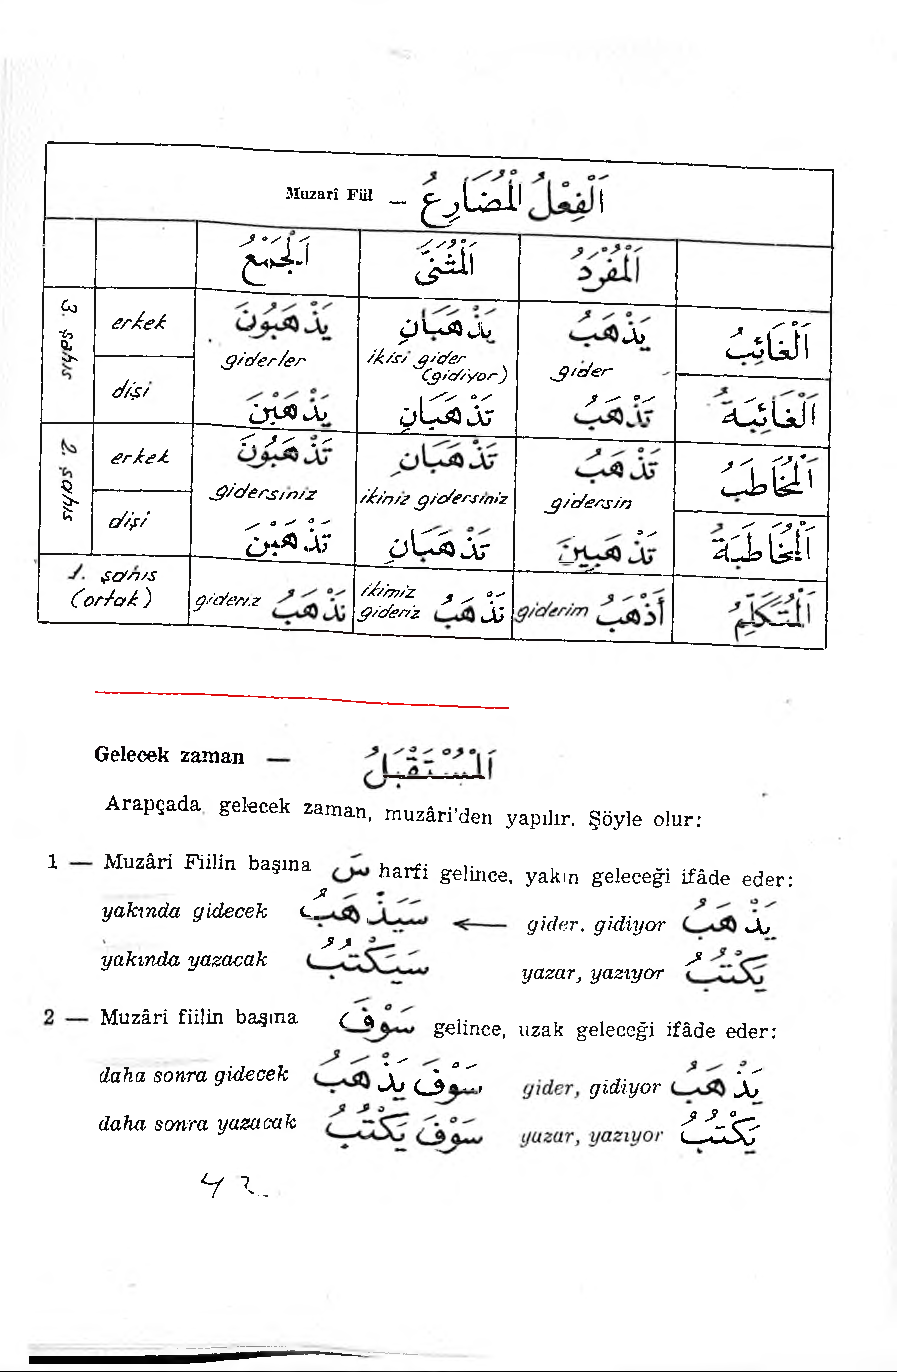 Muzarî Fiil — اَلْفِعْلُ الْمُضَارِعُ
اَلْجَمْعُ اَلْمُثَنَّى اَلْمُفْرَدُ
3. şahıs erkek يَذْهَبُونَ يَذْهَبَانِ يَذْهَبُ اَلْغَائِبُ
giderler ikisi gider (gidiyor) gider
dişi يَذْهَبْنَ تَذْهَبَانِ تَذْهَبُ اَلْغَائِبَةُ
2. şahıs erkek تَذْهَبُونَ تَذْهَبَانِ تَذْهَبُ اَلْمُخَاطَبُ
gidersiniz ikiniz gidersiniz gidersin
dişi تَذْهَبْنَ تَذْهَبَانِ تَذْهَبِينَ اَلْمُخَاطَبَةُ
1. şahıs (ortak) gideriz نَذْهَبُ ikimiz gideriz نَذْهَبُ giderim أَذْهَبُ اَلْمُتَكَلِّمُ
Gelecek zaman — اَلْمُسْتَقْبَلُ
Arapçada gelecek zaman, muzâri'den yapılır. Şöyle olur:
1 — Muzâri Fiilin başına سَ harfi gelince, yakın geleceği ifâde eder:
yakında gidecek سَيَذْهَبُ ← gider, gidiyor يَذْهَبُ
yakında yazacak سَيَكْتُبُ yazar, yazıyor يَكْتُبُ
2 — Muzâri fiilin başına سَوْفَ gelince, uzak geleceği ifâde eder:
daha sonra gidecek سَوْفَ يَذْهَبُ gider, gidiyor يَذْهَبُ
daha sonra yazacak سَوْفَ يَكْتُبُ yazar, yazıyor يَكْتُبُ
42